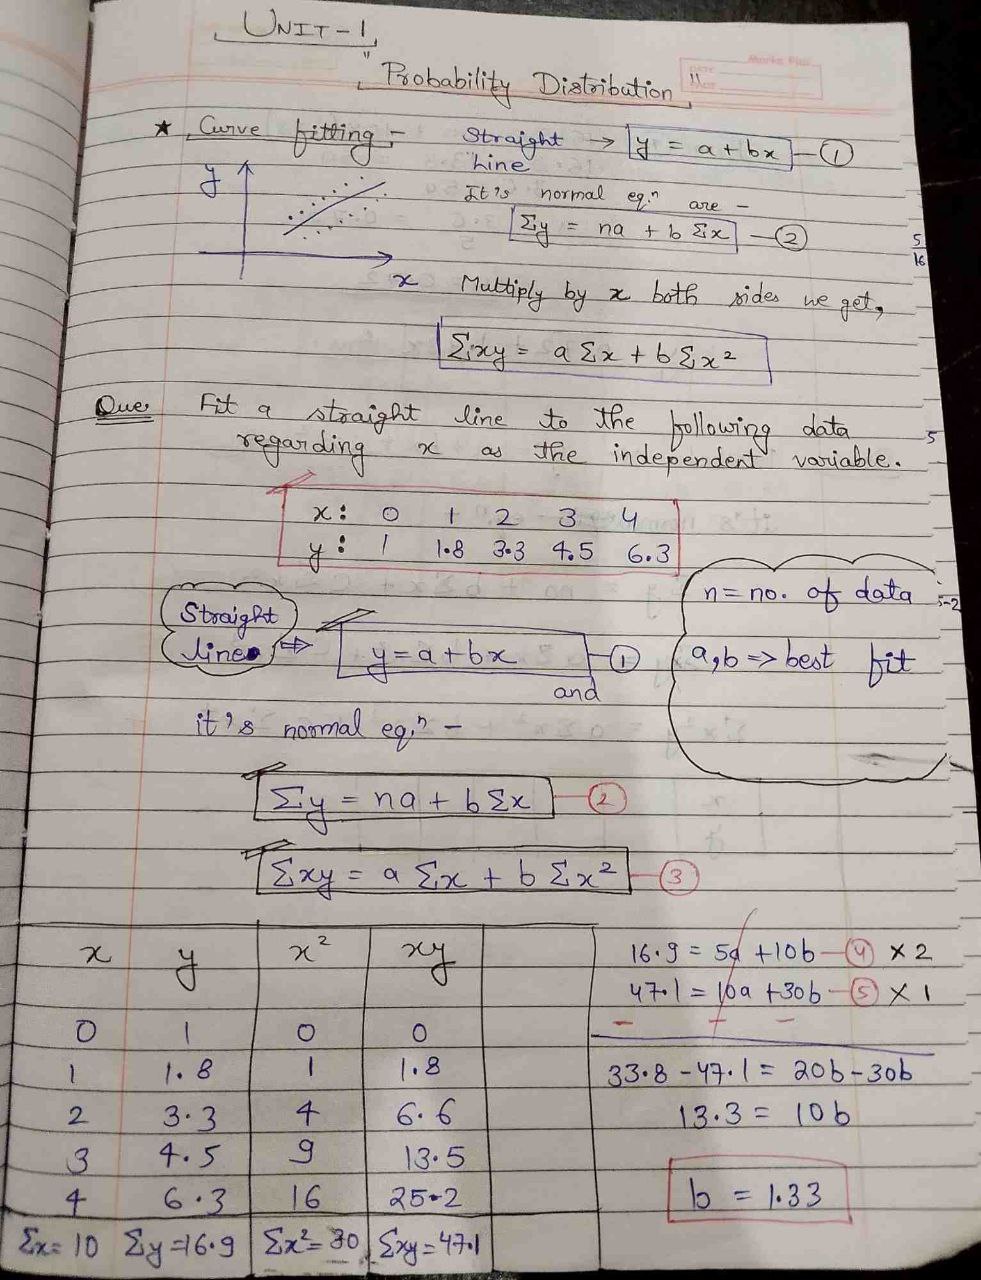 UNIT-1
"Probability Distribution"
★ Curve fitting - Straight Line → y = a + bx — ①
y
x
It's normal eq.n are -
Σy = na + b Σx — ②
5
16
Multiply by x both sides we get,
Σxy = a Σx + b Σx²
Que. Fit a straight line to the following data
regarding x as the independent variable.
5
x: 0 1 2 3 4
y: 1 1.8 3.3 4.5 6.3
n = no. of data
a, b => best fit
Straight line ⇒ y = a + bx — ①
and
it's normal eq.n -
Σy = na + b Σx — ②
Σxy = a Σx + b Σx² — ③
x y x² xy
0 1 0 0
1 1.8 1 1.8
2 3.3 4 6.6
3 4.5 9 13.5
4 6.3 16 25.2
Σx = 10 Σy = 16.9 Σx² = 30 Σxy = 47.1
16.9 = 5a + 10b — ④ × 2
47.1 = 10a + 30b — ⑤ × 1
33.8 - 47.1 = 20b - 30b
13.3 = 10b
b = 1.33